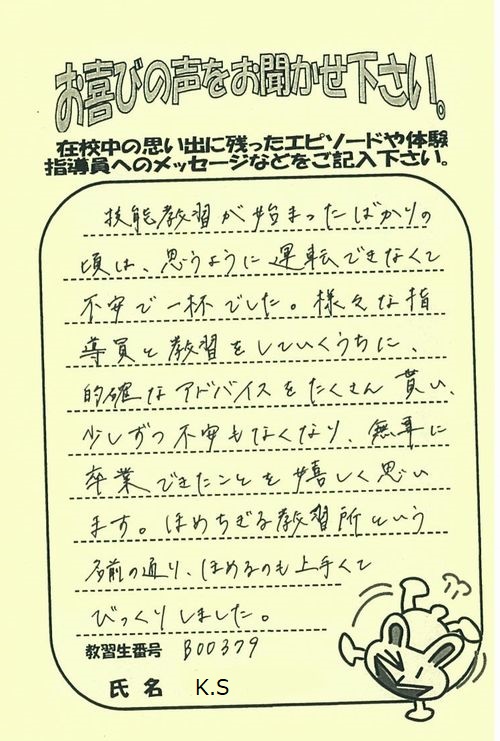 お喜びの声をお聞かせ下さい。
在校中の思い出に残ったエピソードや体験
指導員へのメッセージなどをご記入下さい。
技能教習が始まったばかりの
頃は、思うように運転できなくて
不安で一杯でした。様々な指
導員と教習をしていくうちに、
的確なアドバイスをたくさん貰い、
少しずつ不安もなくなり、無事に
卒業できたことを嬉しく思い
ます。ほめちぎる教習所という
名前の通り、ほめるのも上手くて
びっくりしました。
教習生番号 B00379
氏名 K.S